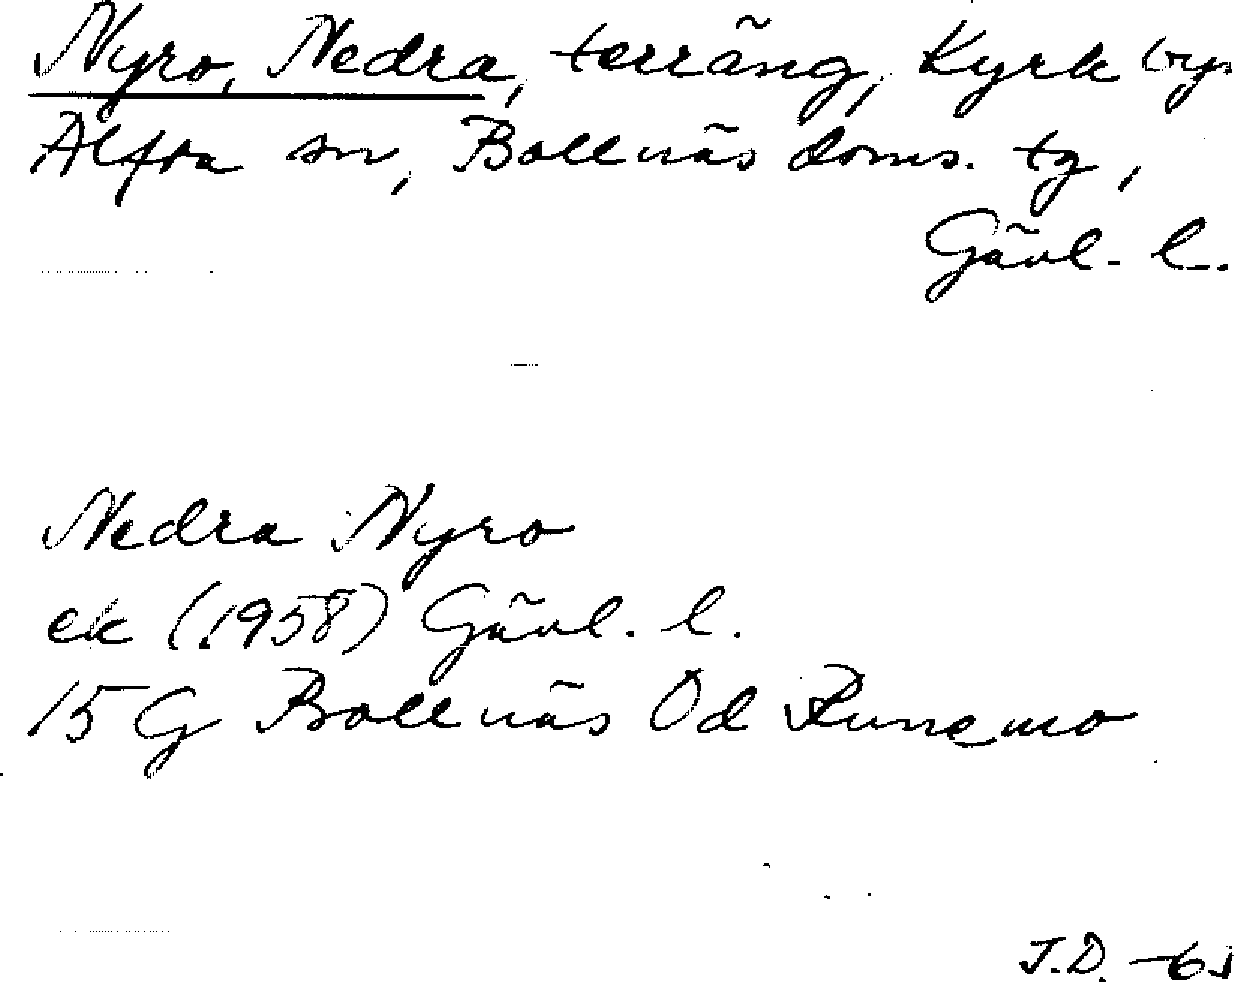 Nyro, Nedra, terräng, Kyrkby
Alfta sn, Bollnäs doms. tg,
Gävl. l.
Nedra Nyro
ek (1958) Gävl. l.
15 G Bollnäs Öd Runemo
J.D.